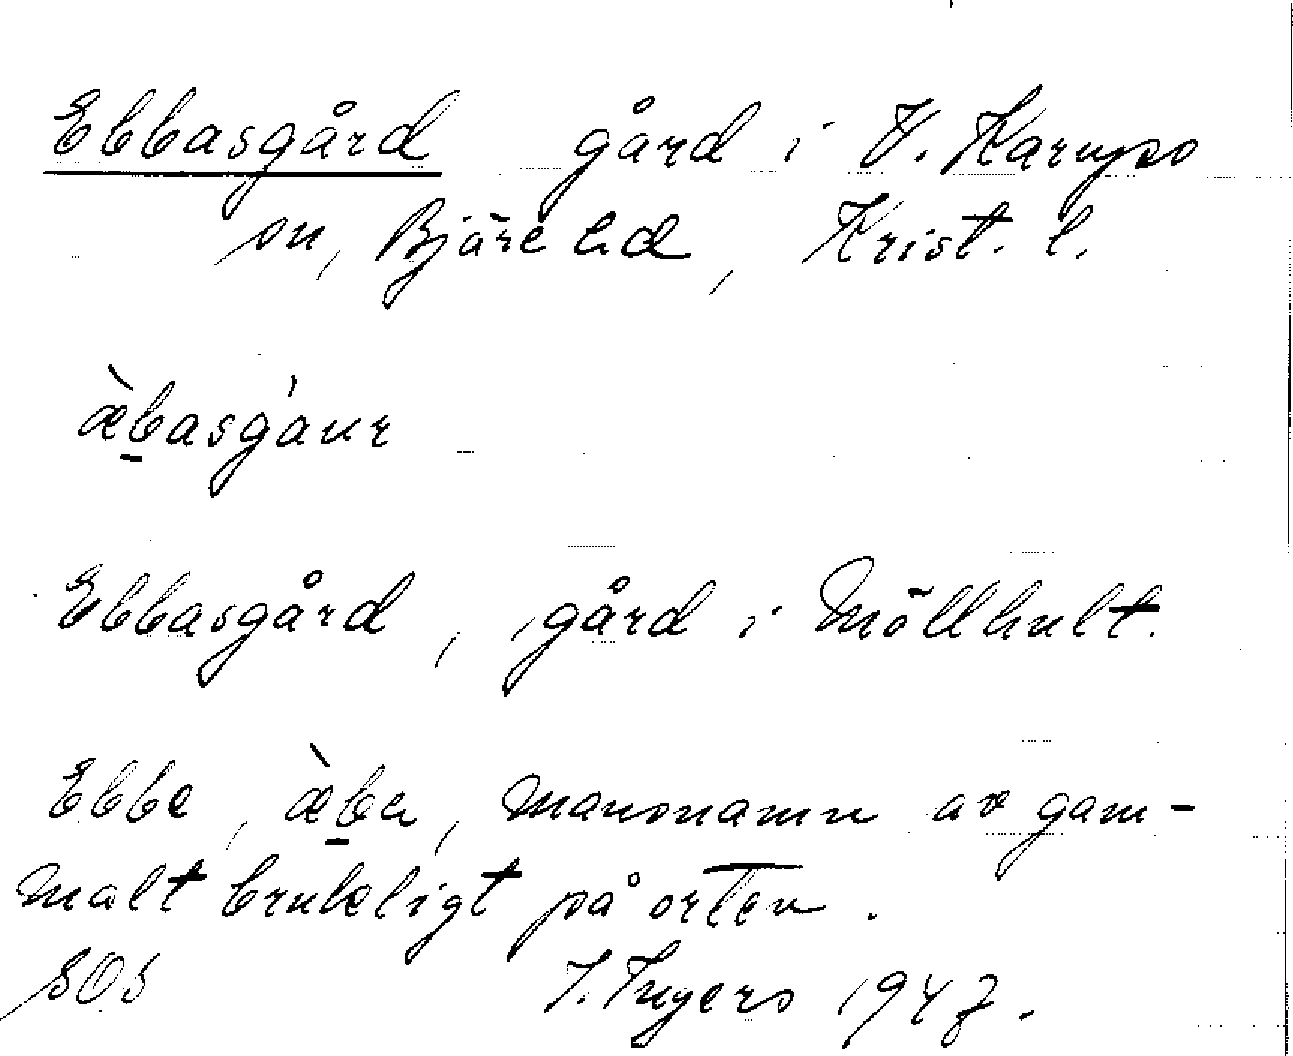 Ebbasgård gård i V. Karups
sn, Bjäre hd, Krist. l.
æ̀basgáur
Ebbasgård, gård i Möllhult.
Ebbe, æ̀ba, mansnamn av gam-
malt brukligt på orten.
SOS I. Ingers 1947.